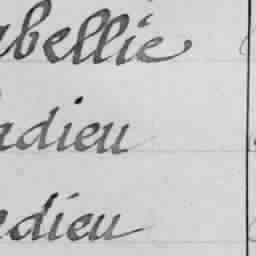 abellie
adieu
adieu